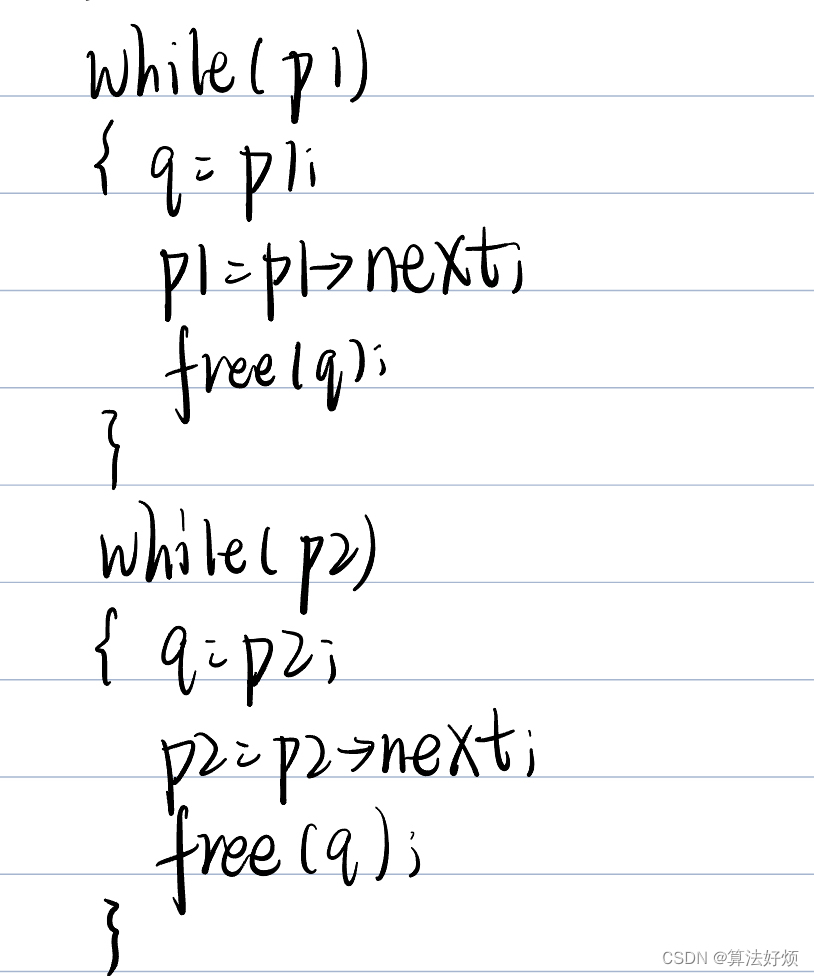 while(p1)
{ q=p1;
p1=p1->next;
free(q);
}
while(p2)
{ q=p2;
p2=p2->next;
free(q);
}
CSDN @算法好烦